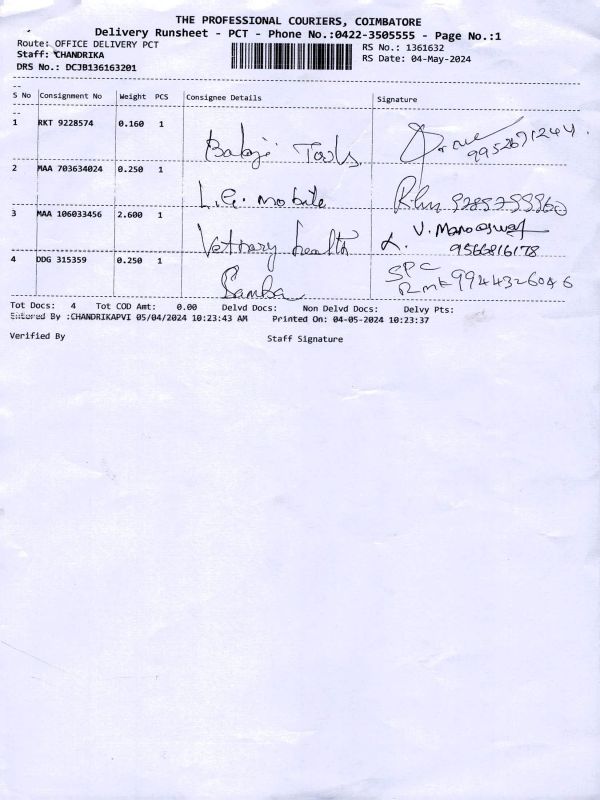 THE PROFESSIONAL COURIERS, COIMBATORE
Delivery Runsheet - PCT - Phone No.:0422-3505555 - Page No.:1
Route: OFFICE DELIVERY PCT
Staff: CHANDRIKA
DRS No.: DCJB136163201
RS No.: 1361632
RS Date: 04-May-2024
S No Consignment No Weight PCS Consignee Details Signature
1 RKT 9228574 0.160 1
Balaji Tools 9952671244
2 MAA 703634024 0.250 1
L.G. mobile
3 MAA 106033456 2.600 1 V.
Vetnary health 9566816178
4 DDG 315359 0.250 1 SPC
Samba 9944326046
Tot Docs: 4 Tot COD Amt: 0.00 Delvd Docs: Non Delvd Docs: Delvy Pts:
Entered By :CHANDRIKAPVI 05/04/2024 10:23:43 AM Printed On: 04-05-2024 10:23:37
Verified By Staff Signature